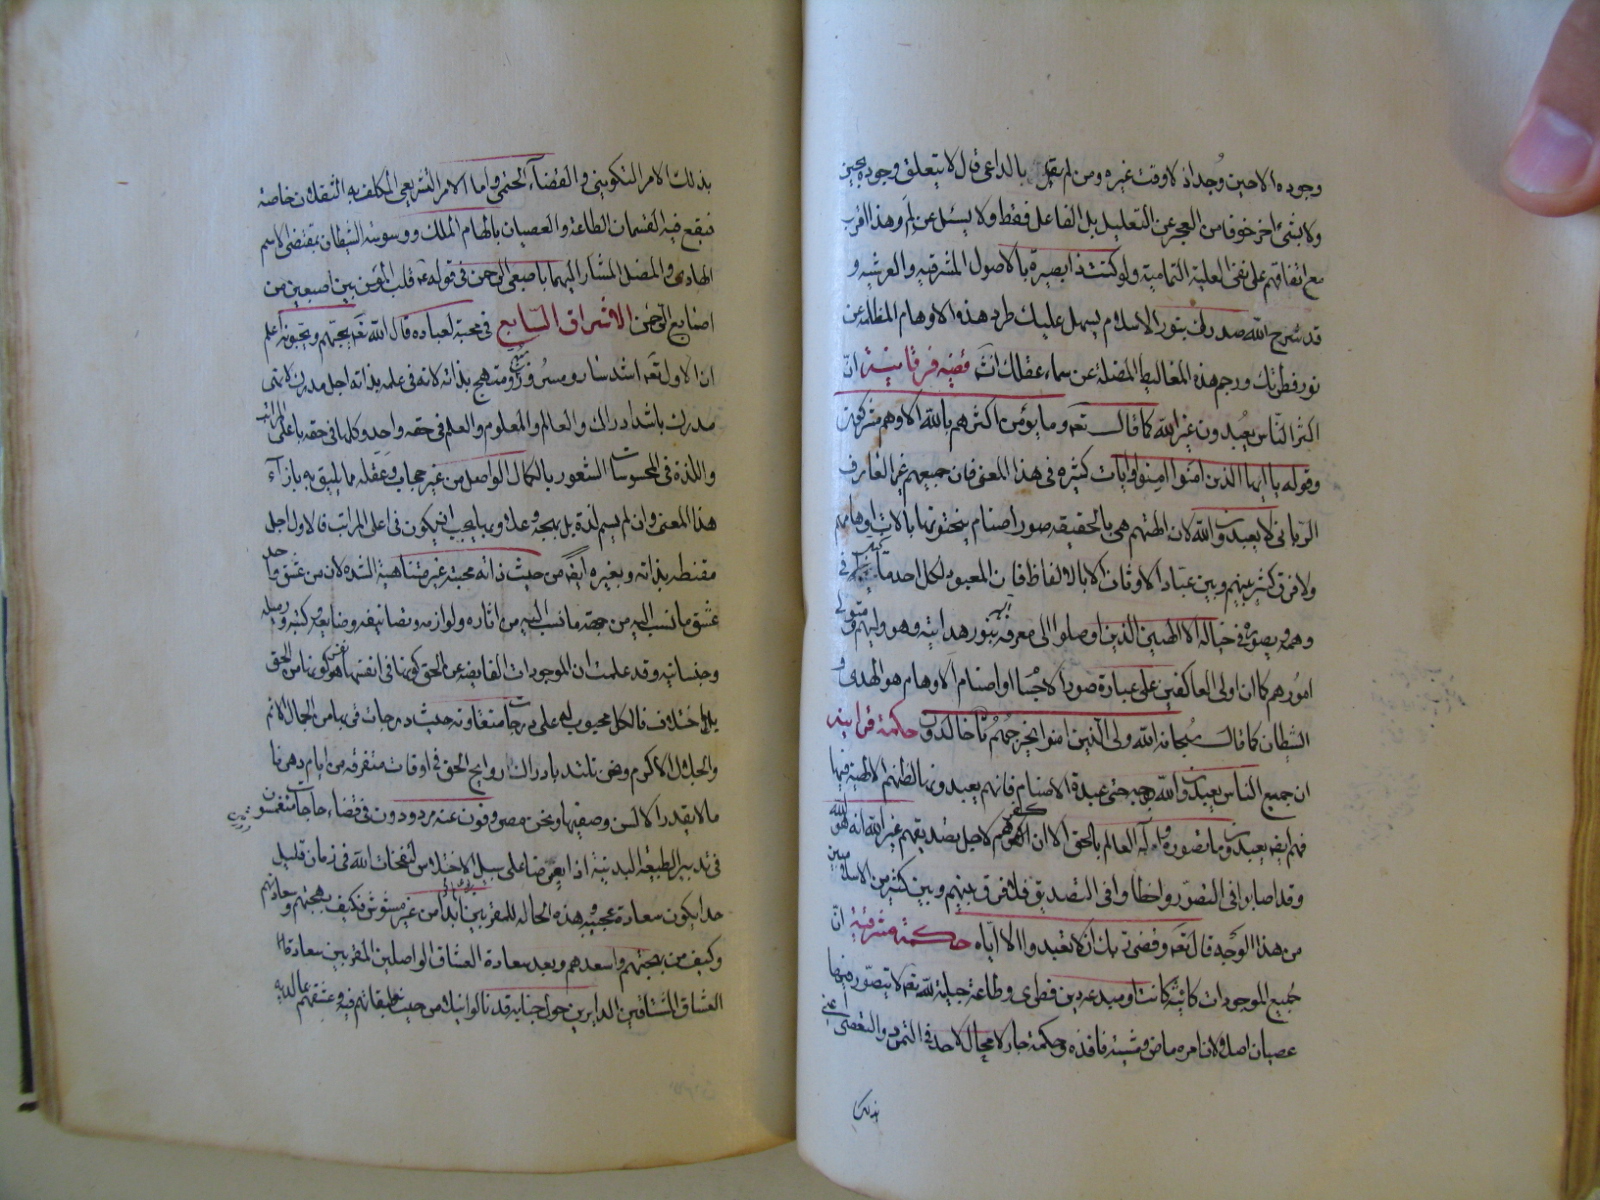 وجوده الا حين وجد اذ لا وقت غيره ومن لم يقل بالداعى قال لا يتعلق وجوده بحين
ولا بشىء اخر خوفا من العجز عن التعليل بل الفاعل فقط ولا يسئل عن لم وهذا اقرب
مع اتفاقهم على نفى العلية التمامية ولو كنت ذا بصيرة بالاصول المشرقيه والعرشيه و
قد شرح الله صدرك بنور الاسلام يسهل عليك طرد هذه الاوهام المظلمة عن
نور فطرتك ورجم هذه المغاليط المضلة عن سماء عقلك انش تع قضيه فرقانيه ان
اكثر الناس يعبدون غير الله كما قال تعه وما يؤمن اكثرهم بالله الا وهم مشركون
وقوله يا ايها الذين امنوا امنوا وايات كثيره فى هذا المعنى فان جميعهم غير العارف
الربانى لا يعبدون الله لان الهتهم هى بالحقيقه صور اصنام ينحتونها بالات اوهامهم
ولا فرق كثير بينهم وبين عباد الاوثان الا بالالفاظ فان المعبود لكل احد ما فى
وهمه ويصوره فى خياله الا الهيين الذين وصلوا الى معرفه بنور هدايته وهو وليهم ومتولى
امورهم كما ان اولى العاكفين على عبادة صور الاجسا او اصنام الاوهام هو الهوى و
الشطان كما قال سبحانه الله ولى الذين امنوا يخرجهم تا خالدون حكمة قرانيه
ان جميع الناس يعبدون الله بوجه حتى عبدة الاصنام فانهم يعبدونها لظنهم الالهية فيها
فهم ايضه يعبدون ما تصوروه اله العالم بالحق الا ان كفرهم لاجل تصديقهم غير الله انه هو الله
وقد اصابوا فى التصور واخطاوا فى التصديق فلا فرق بينهم وبين كثير من الاسلاميين
من هذا الوجه قال تعه وقضى ربك ان لا تعبدوا الا اياه حكمة مشرقية ان
جميع الموجودات كائنة كانت او مبدعه دين فطرى وطاعة جبلية لله تعه لا يتصور فيها
عصيان اصلا ولان امره ماض ومشيته نافذه وحكمه جار لا مجال لاحد فى التمرد والتعصى اعنى
بذلك
بذلك الامر التكوينى والقضاء الحتمى واما الامر التشريعى المكلف به الثقلان خاصة
فيقع فيه القسمان الطاعة والعصيان بالهام الملك ووسوسة الشطان بمقتضى الاسم
الهادى والمضل المشار اليهما باصبعى الرحمن فى قوله عه قلب المؤمن بين اصبعين من
اصابع الرحمن الاشراق السابع فى محبة لعباده قال الله تعه يحبهم ويحبونه اعلم
ان الاول تعه اشد سار ومسرور ومبتهج بذاته لانه فى علمه بذاته اجل مدرك لابهى
مدرك باشد ادراك والعالم والمعلوم والعلم فى حقه واحد وكلها فى حقه باعلى المراتب
واللذة فى المحسوسات الشعور بالكمال الواصل من غير حجاب وعقله مما يليق به بازاء
هذا المعنى وان لم يسم لذة بل بهجة وعلا وبها يجب ان يكون فى اعلى المراتب فالاول اجل
مغتبطه بذاته وبغيره ايضه من حيث ذاته محبته غير متناهية الشده لان من عشق واحد
عشق ما نسب اليه من جهة ما نسب اليه من اثاره ولوازمه وتصانيفه وصنايعه وكتبه ورسله
وجنساته وقد علمت ان الموجودات الفايضه عن الحق كونها فى انفسها هو كونها من الحق
بلا اختلاف فالكل محبوب له على درجات متفاوته حيث درجات قربها من الجمال الاتم
والجلال الاكرم ونحن نلتذ بادراك روايح الحق فى اوقات متفرقه من ايام دهرنا
ما لا يقدر الالسن وصفها ونحن مصروفون عنه مردودون فى قضاء حاجات منغمسون
فى تدبير الطبيعة البدنية اذا تعرضنا على سبيل الاختلاس لنفحات الله فى زمان قليل
جدا يكون سعادة عجيبه هذه الحاله للمقربين ابدا من غير مشوش فكيف بهجتهم وحالهم
وكيف من بهجتهم واسعدهم وبعد سعادة العشاق الواصلين المقربين سعادة
العشاق المشتاقين الدايرين حول جنابه قد نالوا نيلا من حيث طبقاتهم فيه وعشقهم عالديه